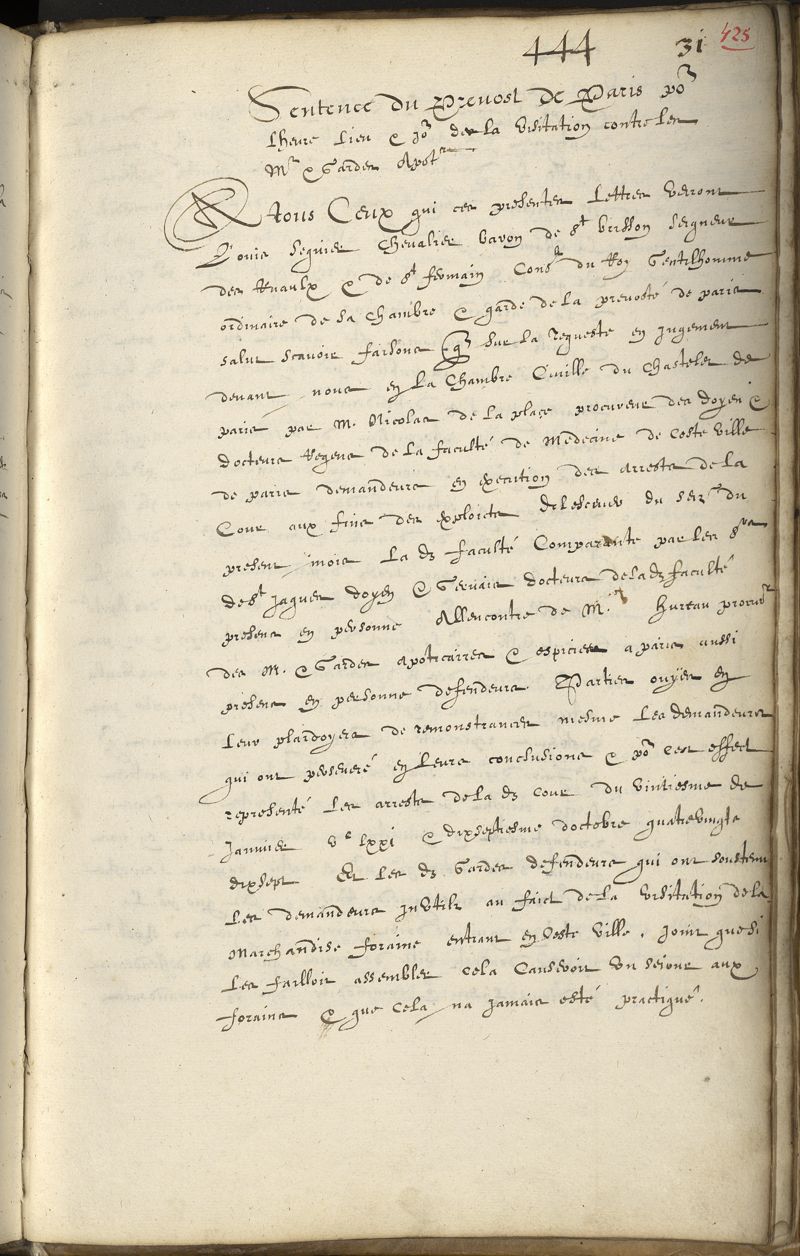 444 31 425
Sentence du Prevost de Paris po^r
Lheure Lieu & jo^r de la visitation contre les
M^es & Gardes Apot^res
A tous Ceux qui ces presentes Lettres verront
Louis Seguier Chevalier baron de S^t brisson Seigneur
des Ruaulx & de S^t fermain Cons^er du Roy Gentilhomme
ordinaire de sa Chambre & garde de la prevosté de paris
salut scavoir faisons q^e sur la Requeste en Jugement
devant nous en La Chambre Civille du Chastelet de
paris par M. Nicolas de la place procureur des doyen &
docteurs Regens de la faculté de Medecine de Ceste Ville
de paris demandeurs en execution des arrests de la
Cour aux fins des exploicts du
present mois La d. faculté Comparante par les S^rs
de S^t Jaques doyen & Gervais docteurs de lad. faculté
presens en personne Allencontre de M.^e Hureau procur^r
des M. & Gardes Apoticaires & espiciers a paris aussi
presens en personne defendeurs. Parties ouyes en
Leur plaidoyers de remonstrances mesme Les demandeurs
qui ont perseveré en Leurs conclusions & po^r cest effect
representé Les arrests de la d. Cour du vintiesme de
Janvier v^c lxxi & dixseptiesme doctobre quatrevingts
dixsept Et Les d. Gardes defendeurs qui ont soustenu
Les demandeurs inVtils au faict de la visitation de la
Marchandise foraine entrant en Ceste Ville, Joint que si
Les failloit assembler cela Causeroit Un sejour aux
forains & que cela na jamais esté practiqué.